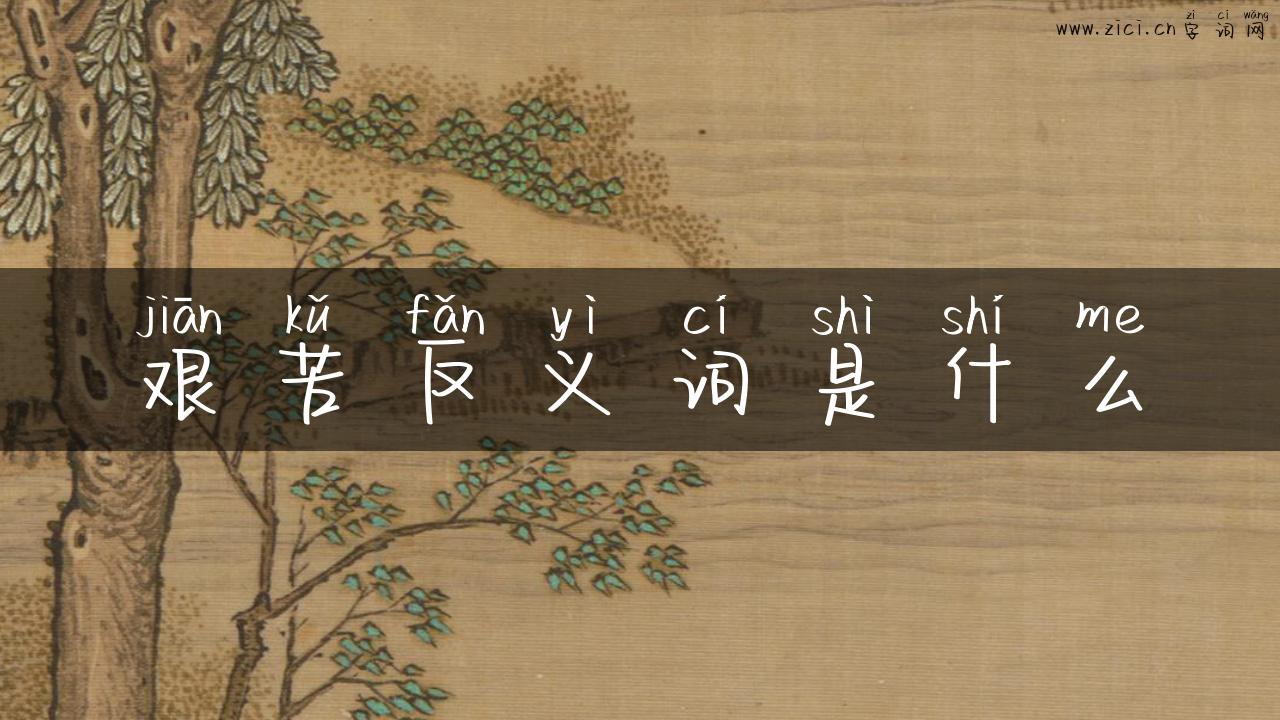 zì cí wǎng
www.zici.cn 字词网
jiān kǔ fǎn yì cí shì shí me
艰苦反义词是什么